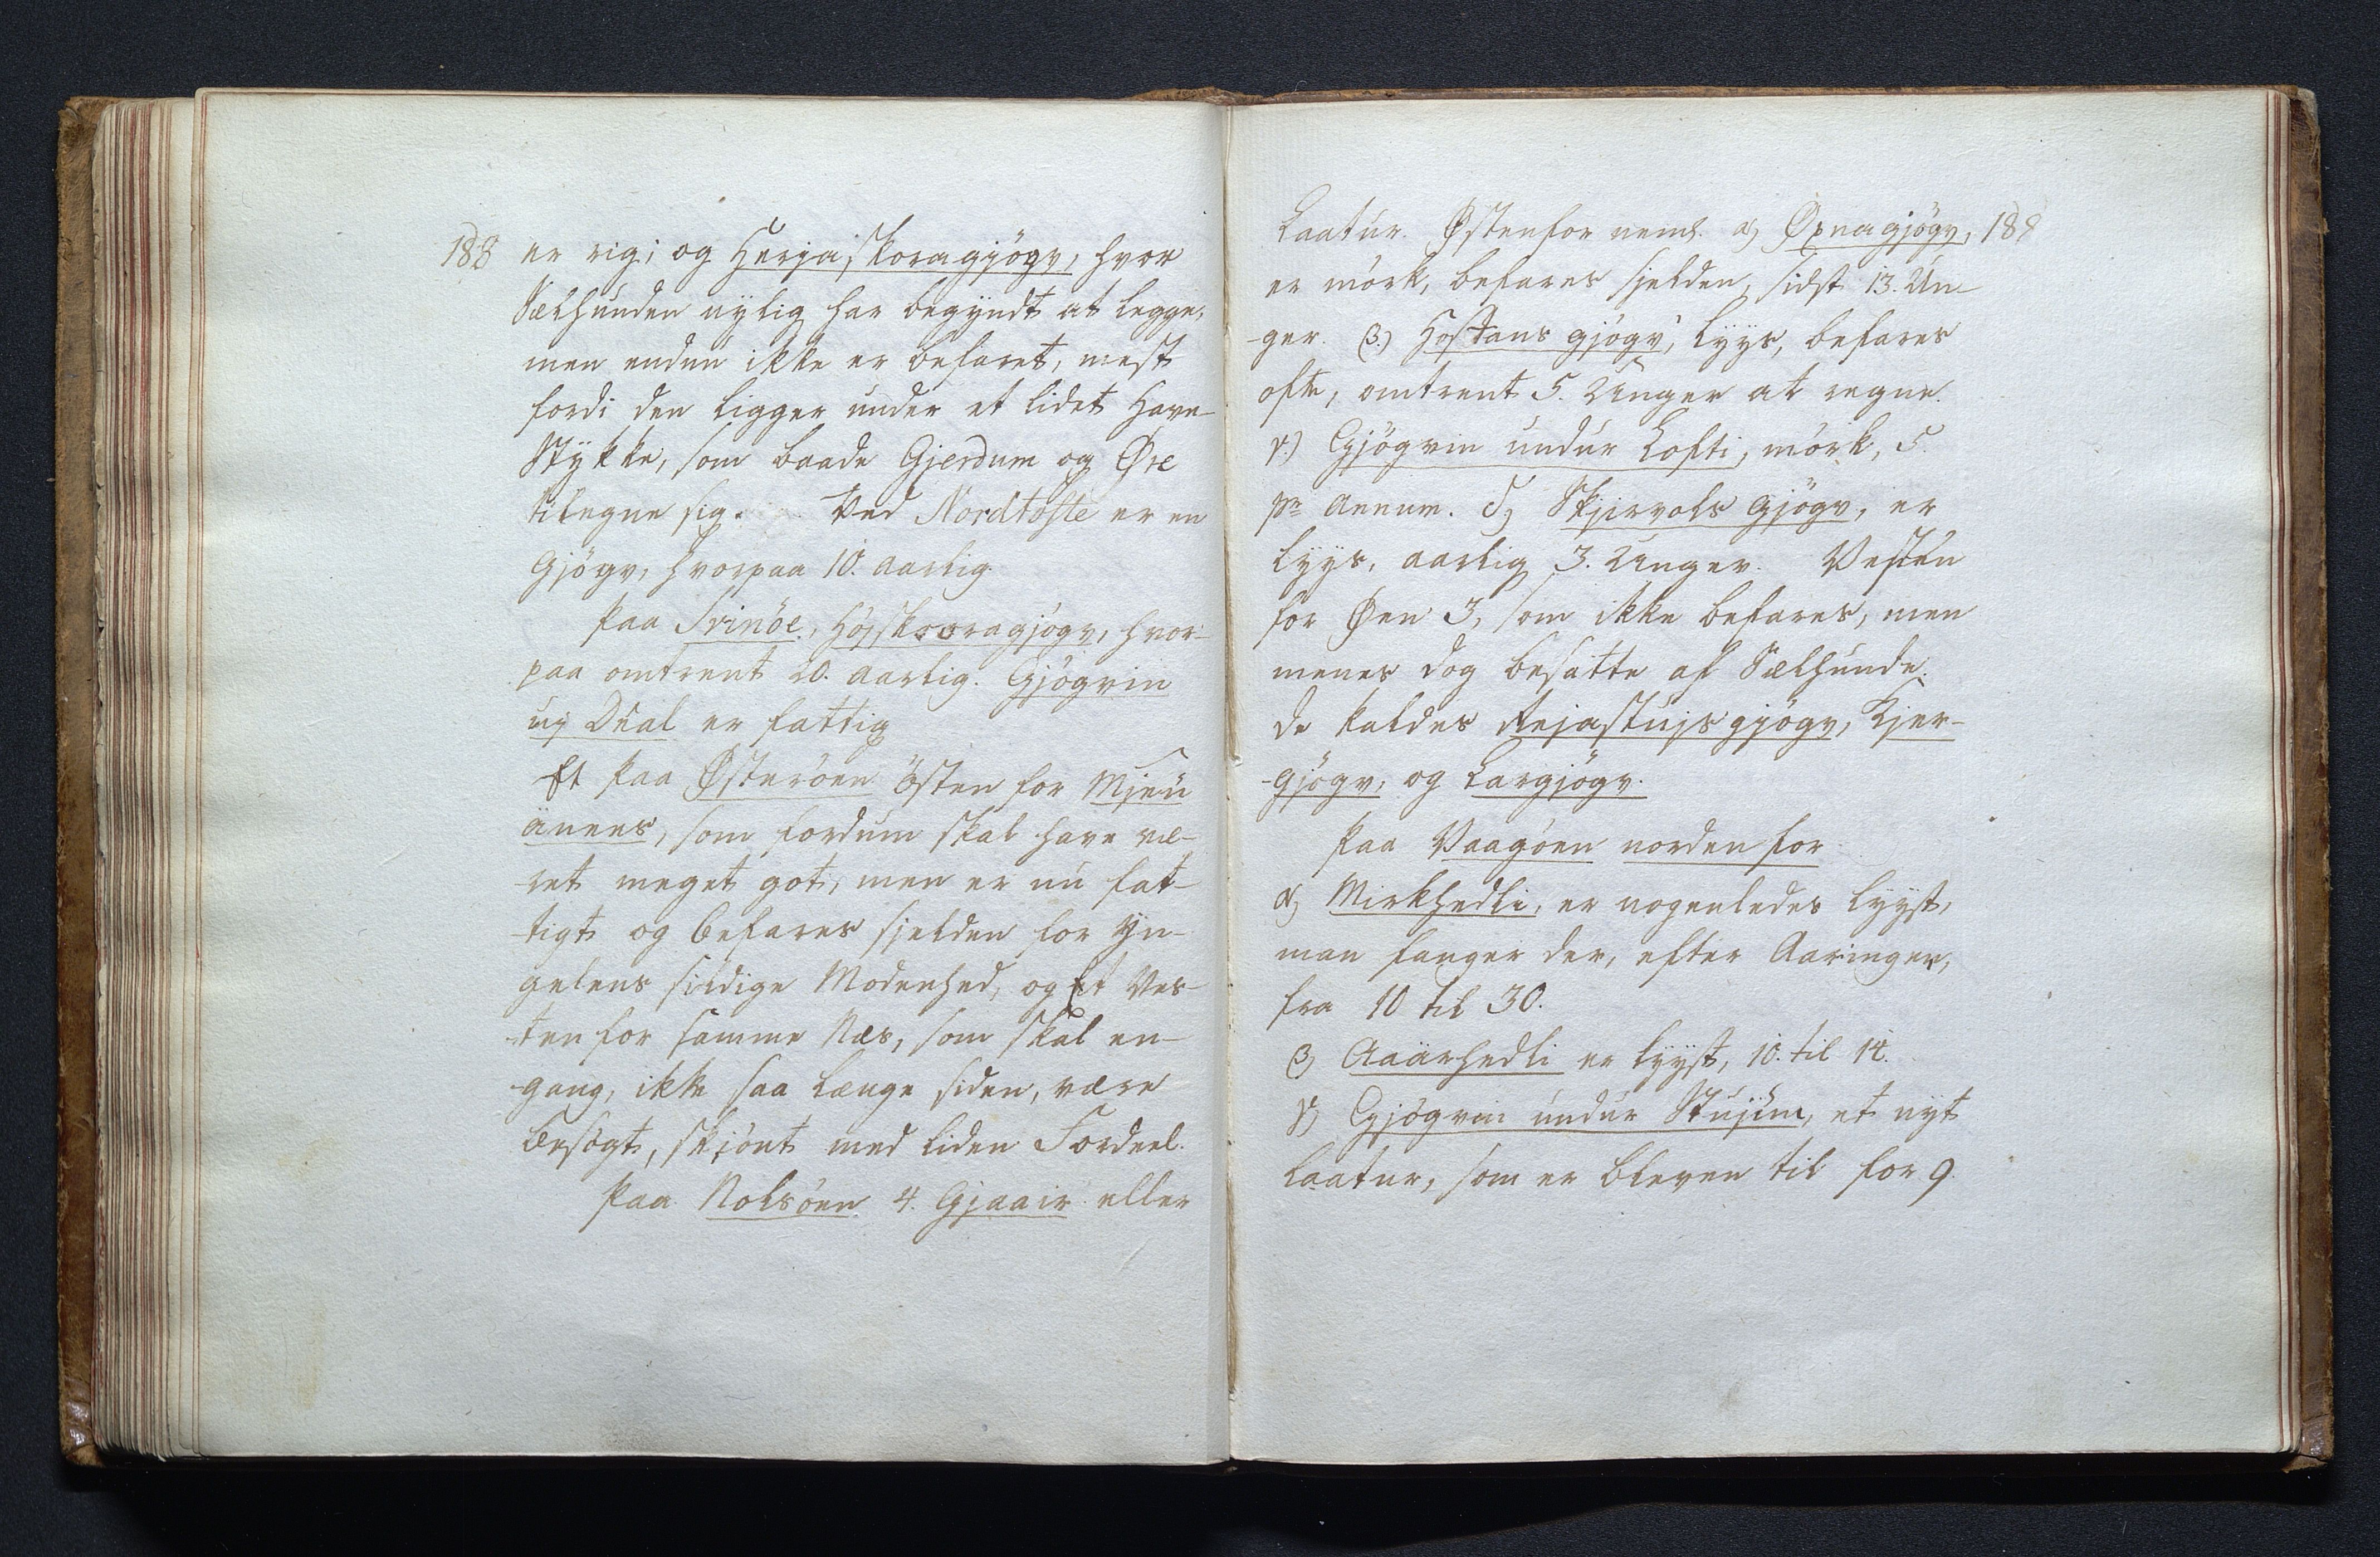 188
er rig; og Herjaskoragjögv, hvor
Sælhunden nylig har begyndt at legge,
men endnu ikke er befaret, mest
fordi den ligger under et lidet Have-
Stykke, som baade Gjerdum og Øre
tilegne sig. Ved Nordtofte er en
Gjögv, hvorpaa 10. aarlig
Paa Svinöe, Höjskooragjögv, hvor-
paa omtrent 20. aarlig. Gjögvin
uj Dial er fattig
Et paa Østeröen östen for Mjeü
änees, som fordum skal have væ-
-ret meget got, men er nu fat-
-tigt og befares sjelden for Yn-
gelens sildige Modenhed, og Et Ves-
-ten for samme Næs, som skal en-
-gang, ikke saa længe siden, være
besögt, skjönt med liden Fordeel.
Paa Nolsöen 4. Gjaair eller
Laatur. Østenfor neml. α) Øxnagjögv, 189
er mörk, befares sjelden, sidst 13. Un-
-ger. β.) Hostans gjögv, lyys, befares
ofte, omtrent 5. Unger at regne.
γ.) Gjögvin undur Lofti, mörk, 5.
pr annum. δ) Skjirvals gjögv, er
lyys, aarlig 3. Unger. Vesten
for Øen 3, som ikke befares, men
menes dog besatte af Sælhunde.
de kaldes Rejastujsgjögv, Kjer-
-gjögv, og Largjögv.
Paa Vaagöen norden for
α) Mirkhedli, er nogenledes lyyst,
man fanger der, efter Aaringer,
fra 10 til 30.
β) Aaärhedli er lyyst, 10. til 14.
γ) Gjögvin undur Stujum, et nyt
Laatur, som er bleven til for 9.